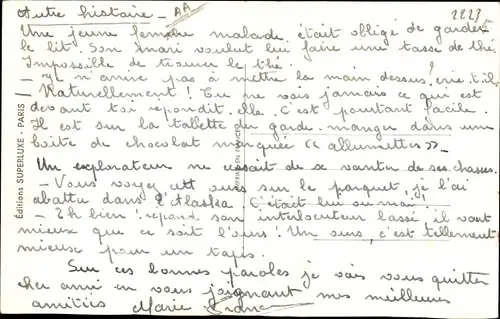 Autre histoire - AA
2223
Une jeune femme malade était obligé de garder
le lit. Son mari voulut lui faire une tasse de thé
Impossible de trouver le thé.
- Je n'arrive pas à mettre la main dessus, crie t'il.
- Naturellement! Tu ne vois jamais ce qui est
devant toi répondit elle. C'est pourtant facile.
Il est sur la tablette du garde-manger dans une
boîte de chocolat marquée « allumettes ».
Un explorateur ne cessait de se vanter de ses chasses.
- Vous voyez cet ours sur le parquet, je l'ai
abattu dans l'Alaska C'était lui ou moi!
- Eh bien! répond son interlocuteur lassé il vaut
mieux que ce soit l'ours! Un ours, c'est tellement
mieux pour un tapis.
Sur ces bonnes paroles je vais vous quitter
cher ami en vous joignant mes meilleures
amitiés Marie
Éditions SUPERLUXE - PARIS